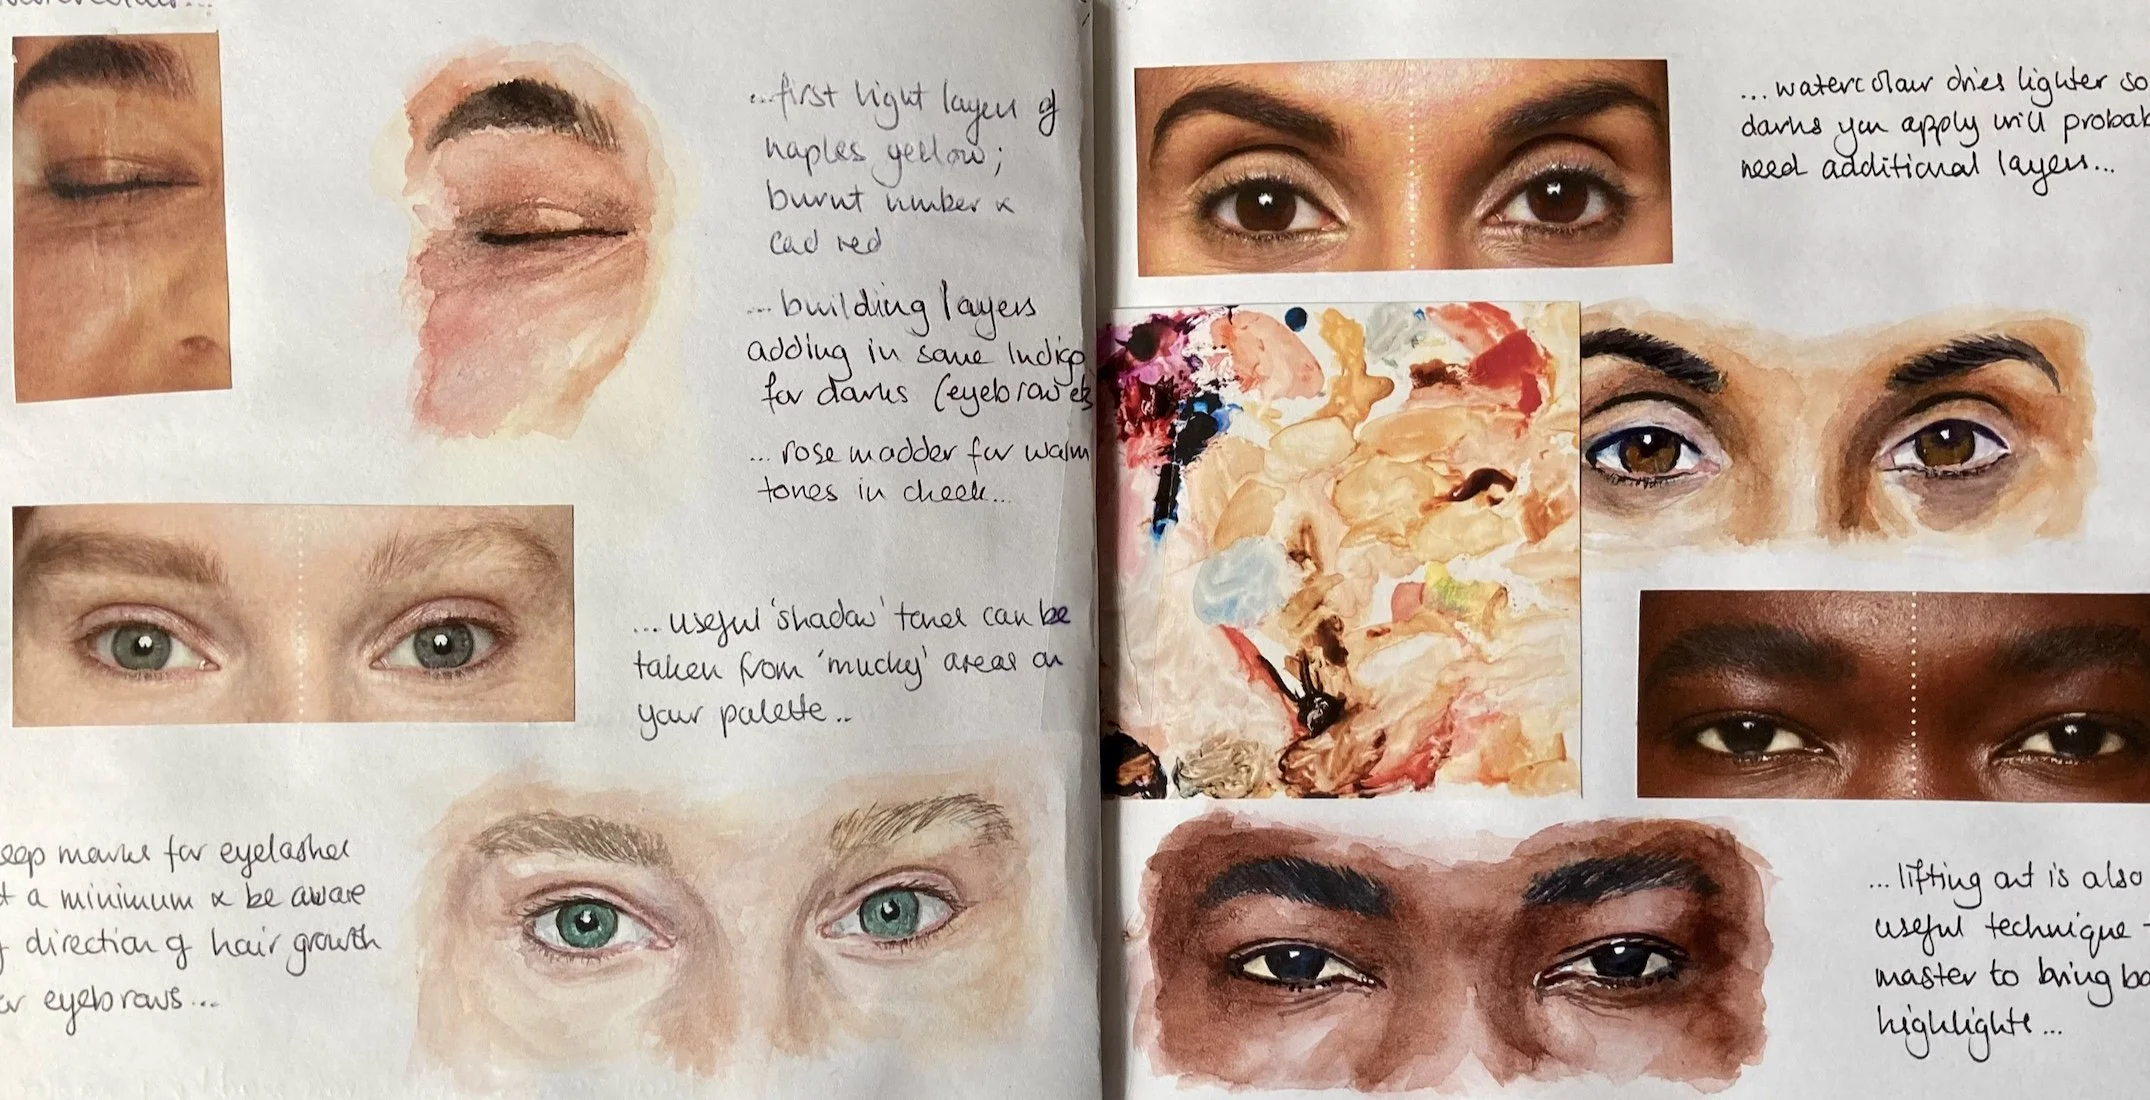 ...first light layer of
naples yellow;
burnt umber &
cad red
...building layers
adding in some Indigo
for darks (eyebrow etc
... rose madder for warm
tones in cheek...
... useful 'shadow' tones can be
taken from 'mucky' areas on
your palette..
eep marks for eyelashes
t a minimum & be aware
f direction of hair growth
or eyebrows...
... watercolour dries lighter so
darks you apply will probab
need additional layers...
...lifting out is also
useful technique -
master to bring ba
highlights...